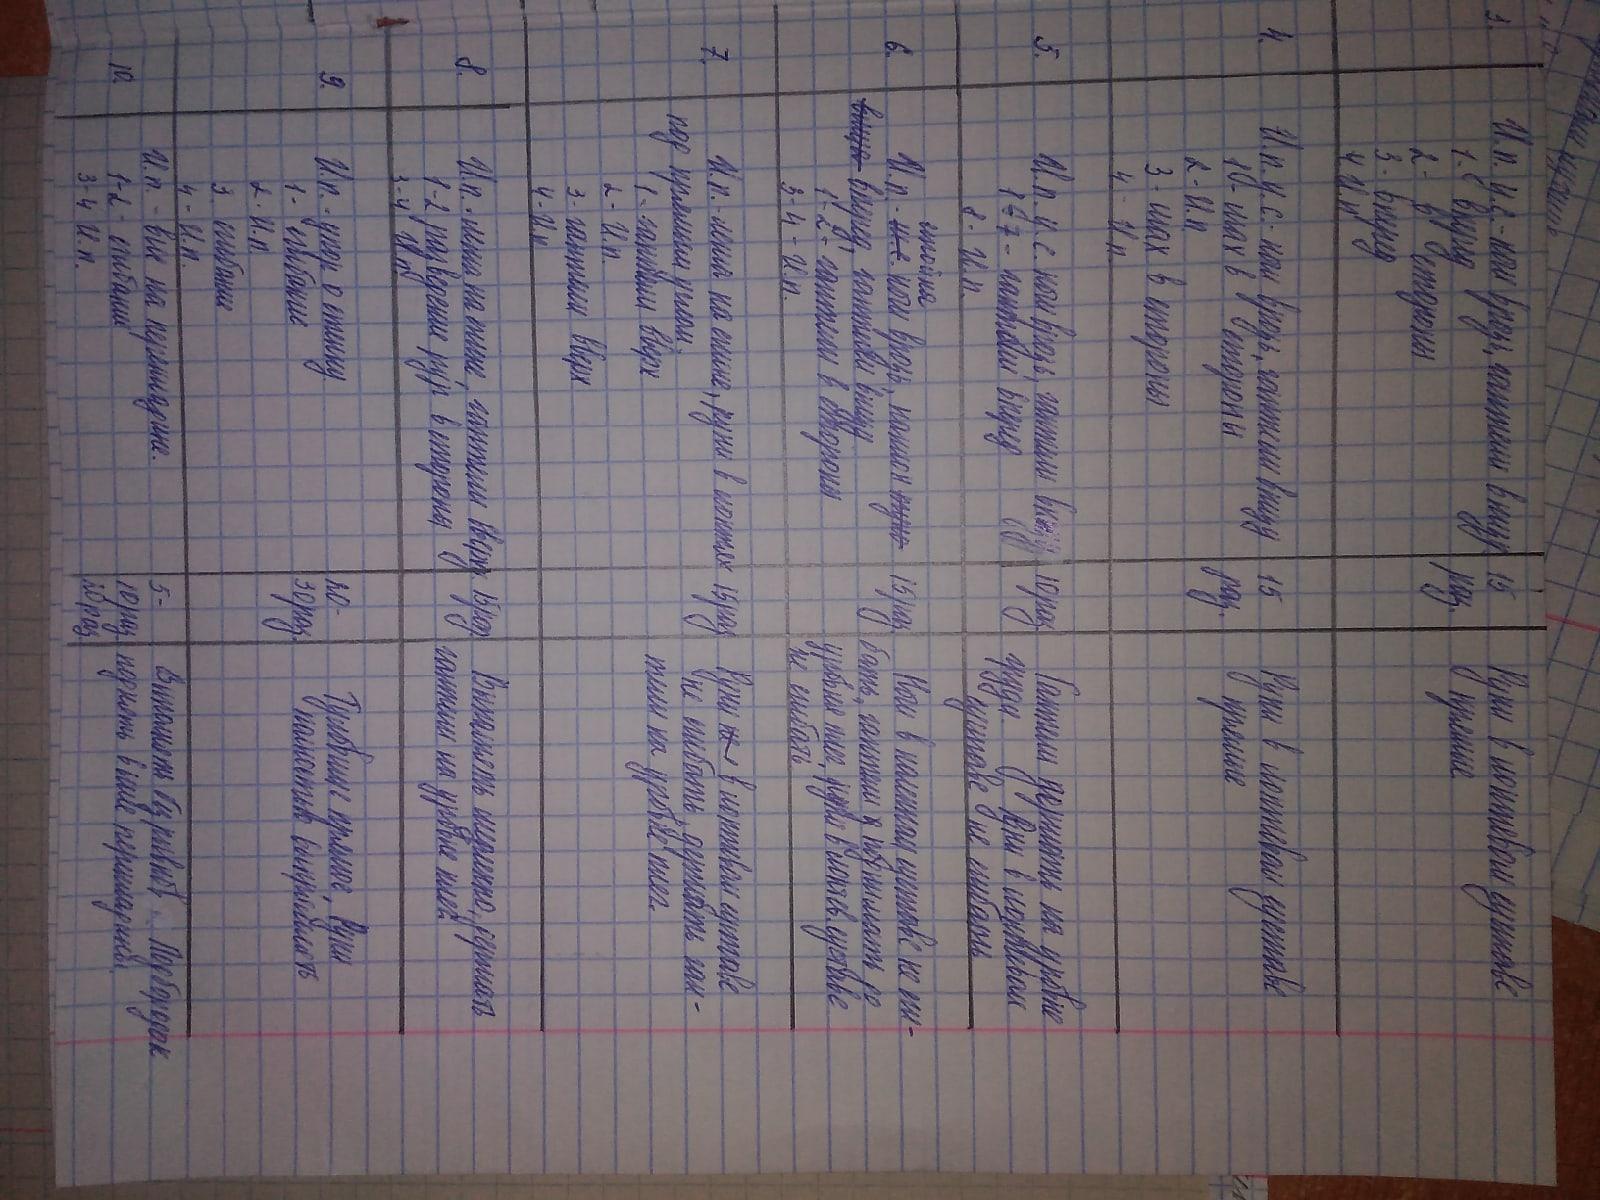 3.
И.п. И.с - ноги врозь, гантели внизу
1 - вперед
2 - в стороны
3 - вперед
4 И.п
15
раз.
Руки в локтевом суставе
прямые
4.
И.п. И.с - ноги врозь, гантели внизу
1 - мах в стороны
2 - И.п
3 - мах в стороны
4 - И.п
15
раз.
Руки в локтевом суставе
прямые
5.
И.п. И.с. ноги врозь, гантели внизу
1-7 - гантели вперед
8 - И.п.
10 раз.
Гантели держать на уровне
груди. Руки в локтевом
суставе не сгибаем
6.
стойка
И.п - ноги врозь, наклон
вперед, гантели внизу
1-2 - гантели в стороны
3-4 - И.п.
15 раз.
Ноги в коленном суставе не сги-
бать, гантели поднимать до
уровня тела, руки в локтев. суставе
не сгибать
7.
И.п. - лежа на спине, руки в локтях
под прямым углом.
1 - гантели вверх
2 - И.п
3 - гантели вверх
4 - И.п
15 раз
Руки в локтевом суставе
не сгибать, держать ган-
тели на уровне тела.
8.
И.п. - лежа на спине, гантели вверх.
1-2 разведение рук в стороны
3-4 И.п
15 раз
Выполнять медленно, держать
гантели на уровне тела
9.
И.п. - упор о стенку
1 - сгибание
2 - И.п
3. сгибание
4 - И.п.
20-
30 раз.
Туловище прямое, руки
полностью выпрямлять
10.
И.п. - вис на перекладине.
1-2 - сгибание
3-4 И.п.
5-
10 раз
Выполнять без рывков. Подбородок
поднять выше перекладины.